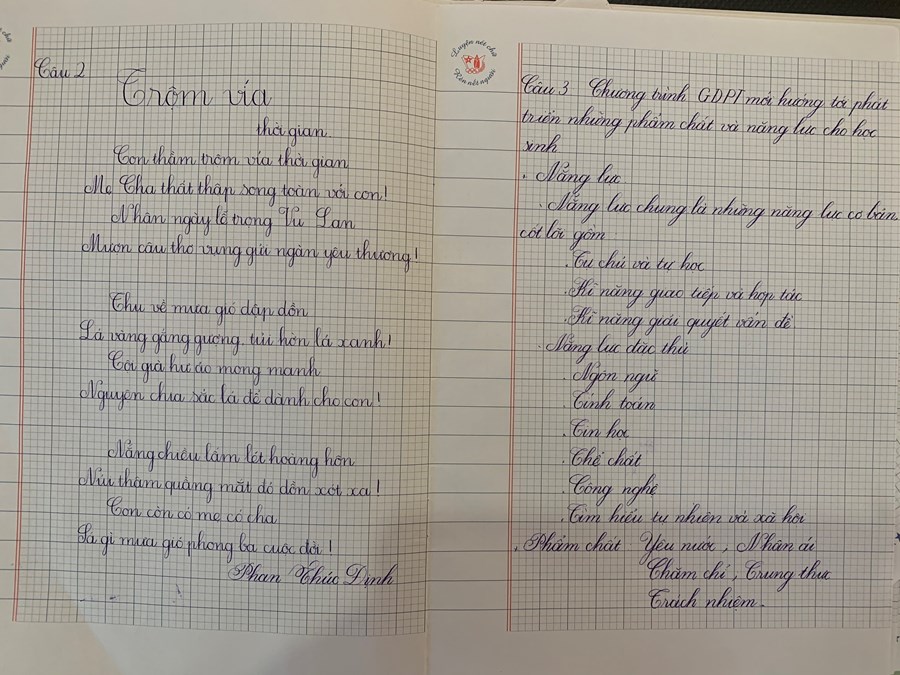 Câu 2
Trộm vía
thời gian.
Con thầm trộm vía thời gian
Mẹ Cha thất thập song toàn với con!
Nhân ngày lễ trọng Vu Lan
Mượn câu thơ vụng gửi ngàn yêu thương!
Thu về mưa gió dập dồn
Lá vàng gắng gượng, tủi hờn lá xanh!
Cội già hư ảo mong manh
Nguyện chưa sắc lá để dành cho con!
Nắng chiều lấm lét hoàng hôn
Núi thâm quầng mắt đỏ dồn xót xa!
Con còn có mẹ có cha
Sá gì mưa gió phong ba cuộc đời!
Phan Thúc Định
Luyện nét chữ
Rèn nết người
Câu 3 Chương trình GDPT mới hướng tới phát
triển những phẩm chất và năng lực cho học
sinh
. Năng lực
. Năng lực chung là những năng lực cơ bản,
cốt lõi gồm
. Tự chủ và tự học
. Kĩ năng giao tiếp và hợp tác
. Kĩ năng giải quyết vấn đề
. Năng lực đặc thù
. Ngôn ngữ
. Tính toán
. Tin học
. Thể chất
. Công nghệ
. Tìm hiểu tự nhiên và xã hội
. Phẩm chất Yêu nước, Nhân ái
Chăm chỉ, Trung thực
Trách nhiệm.